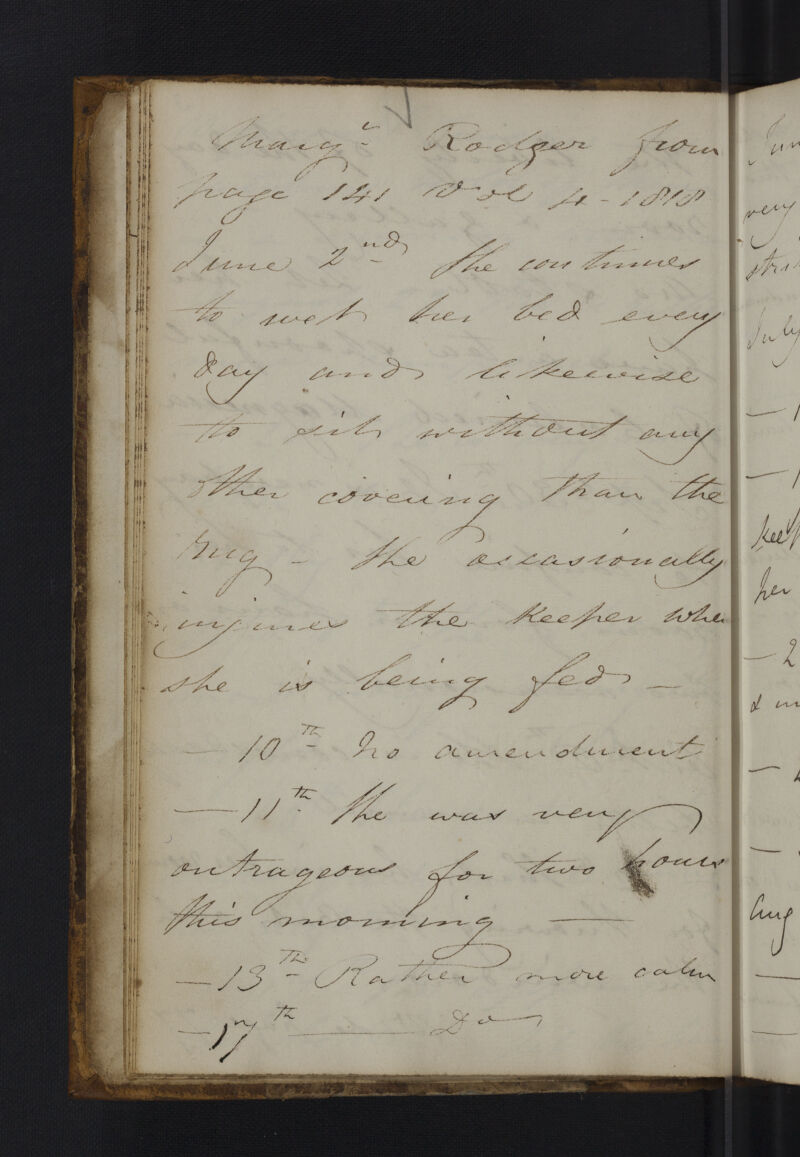 Margt Rodger from
page 141 Vol 4 - 1818
June 2nd She continues
to wet her bed every
day and likewise
to sit without any
other covering than the
rug - She occasionally
injures the keeper whe
she is being fed -
- 10th No amendment
- 11th She was very
outrageous for two hours
this morning -
- 13th Rather more calm
- 17th - Do
Jun
very
stri
July
- 1
- 1
keep
her
- 2
&
-
-
Aug
-
-